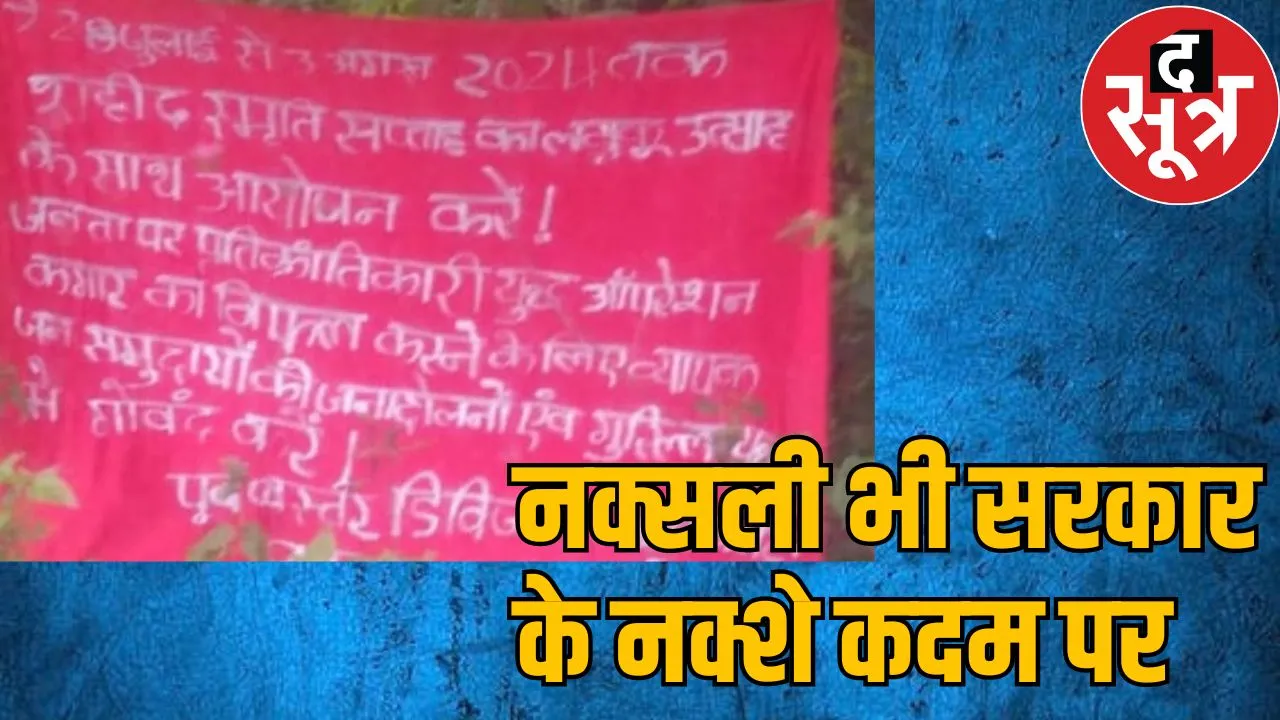 28 जुलाई से 3 अगस्त 2024 तक
शहीद स्मृति सप्ताह का उत्साह
के साथ आयोजन करें!
जनता पर प्रतिक्रांतिकारी युद्ध ऑपरेशन
कगार को विफल करने के लिए व्यापक
जन समुदायों को जनांदोलनों एंव
में गोलबंद करें!
पूर्व बस्तर
द
सूत्र
नक्सली भी सरकार
के नक्शे कदम पर